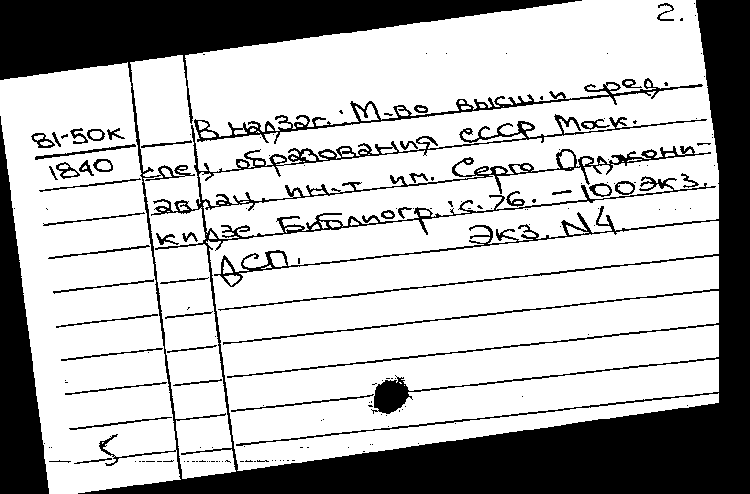 2.
81-50К
1840
В надзаг.: М-во высш. и сред.
спец. образования СССР, Моск.
авиац. ин-т им. Серго Орджони-
кидзе. Библиогр.: с. 76. – 100 экз.
ДСП. Экз. N4.
5